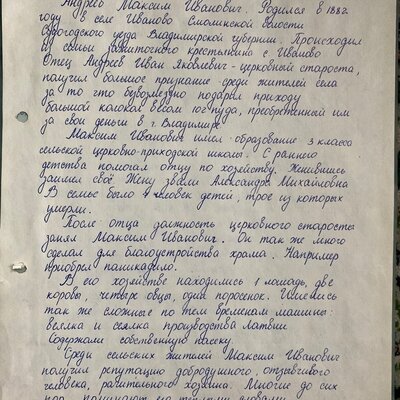 Андреев Максим Иванович. Родился в 1882
году в селе Иваново Смолинской волости
Судогодского уезда Владимирской губернии. Происходил
из семьи зажиточного крестьянина с. Иваново
Отец Андреев Иван Яковлевич - церковный староста,
получил большое признание среди жителей села
за то что безвозмездно подарил приходу
большой колокол весом 107 пуда, приобретенный им
за свои деньги в г. Владимире.
Максим Иванович имел образование 3 класса
сельской церковно-приходской школы. С раннего
детства помогал отцу по хозяйству. Женившись
заимел своё. Жену звали Александра Михайловна
В семье было 7 человек детей, трое из которых
умерли.
После отца должность церковного старосты
занял Максим Иванович. Он так же много
сделал для благоустройства храма. Например
приобрел паникадило.
В его хозяйстве находились 1 лошадь, две
коровы, четыре овцы, один поросенок. Имелись
так же сложные по тем временам машины:
веялка и сеялка производства Латвии
Содержали собственную пасеку.
Среди сельских жителей Максим Иванович
получил репутацию добродушного, отзывчивого
человека, рачительного хозяина. Многие до сих
пор поминают его теплыми словами